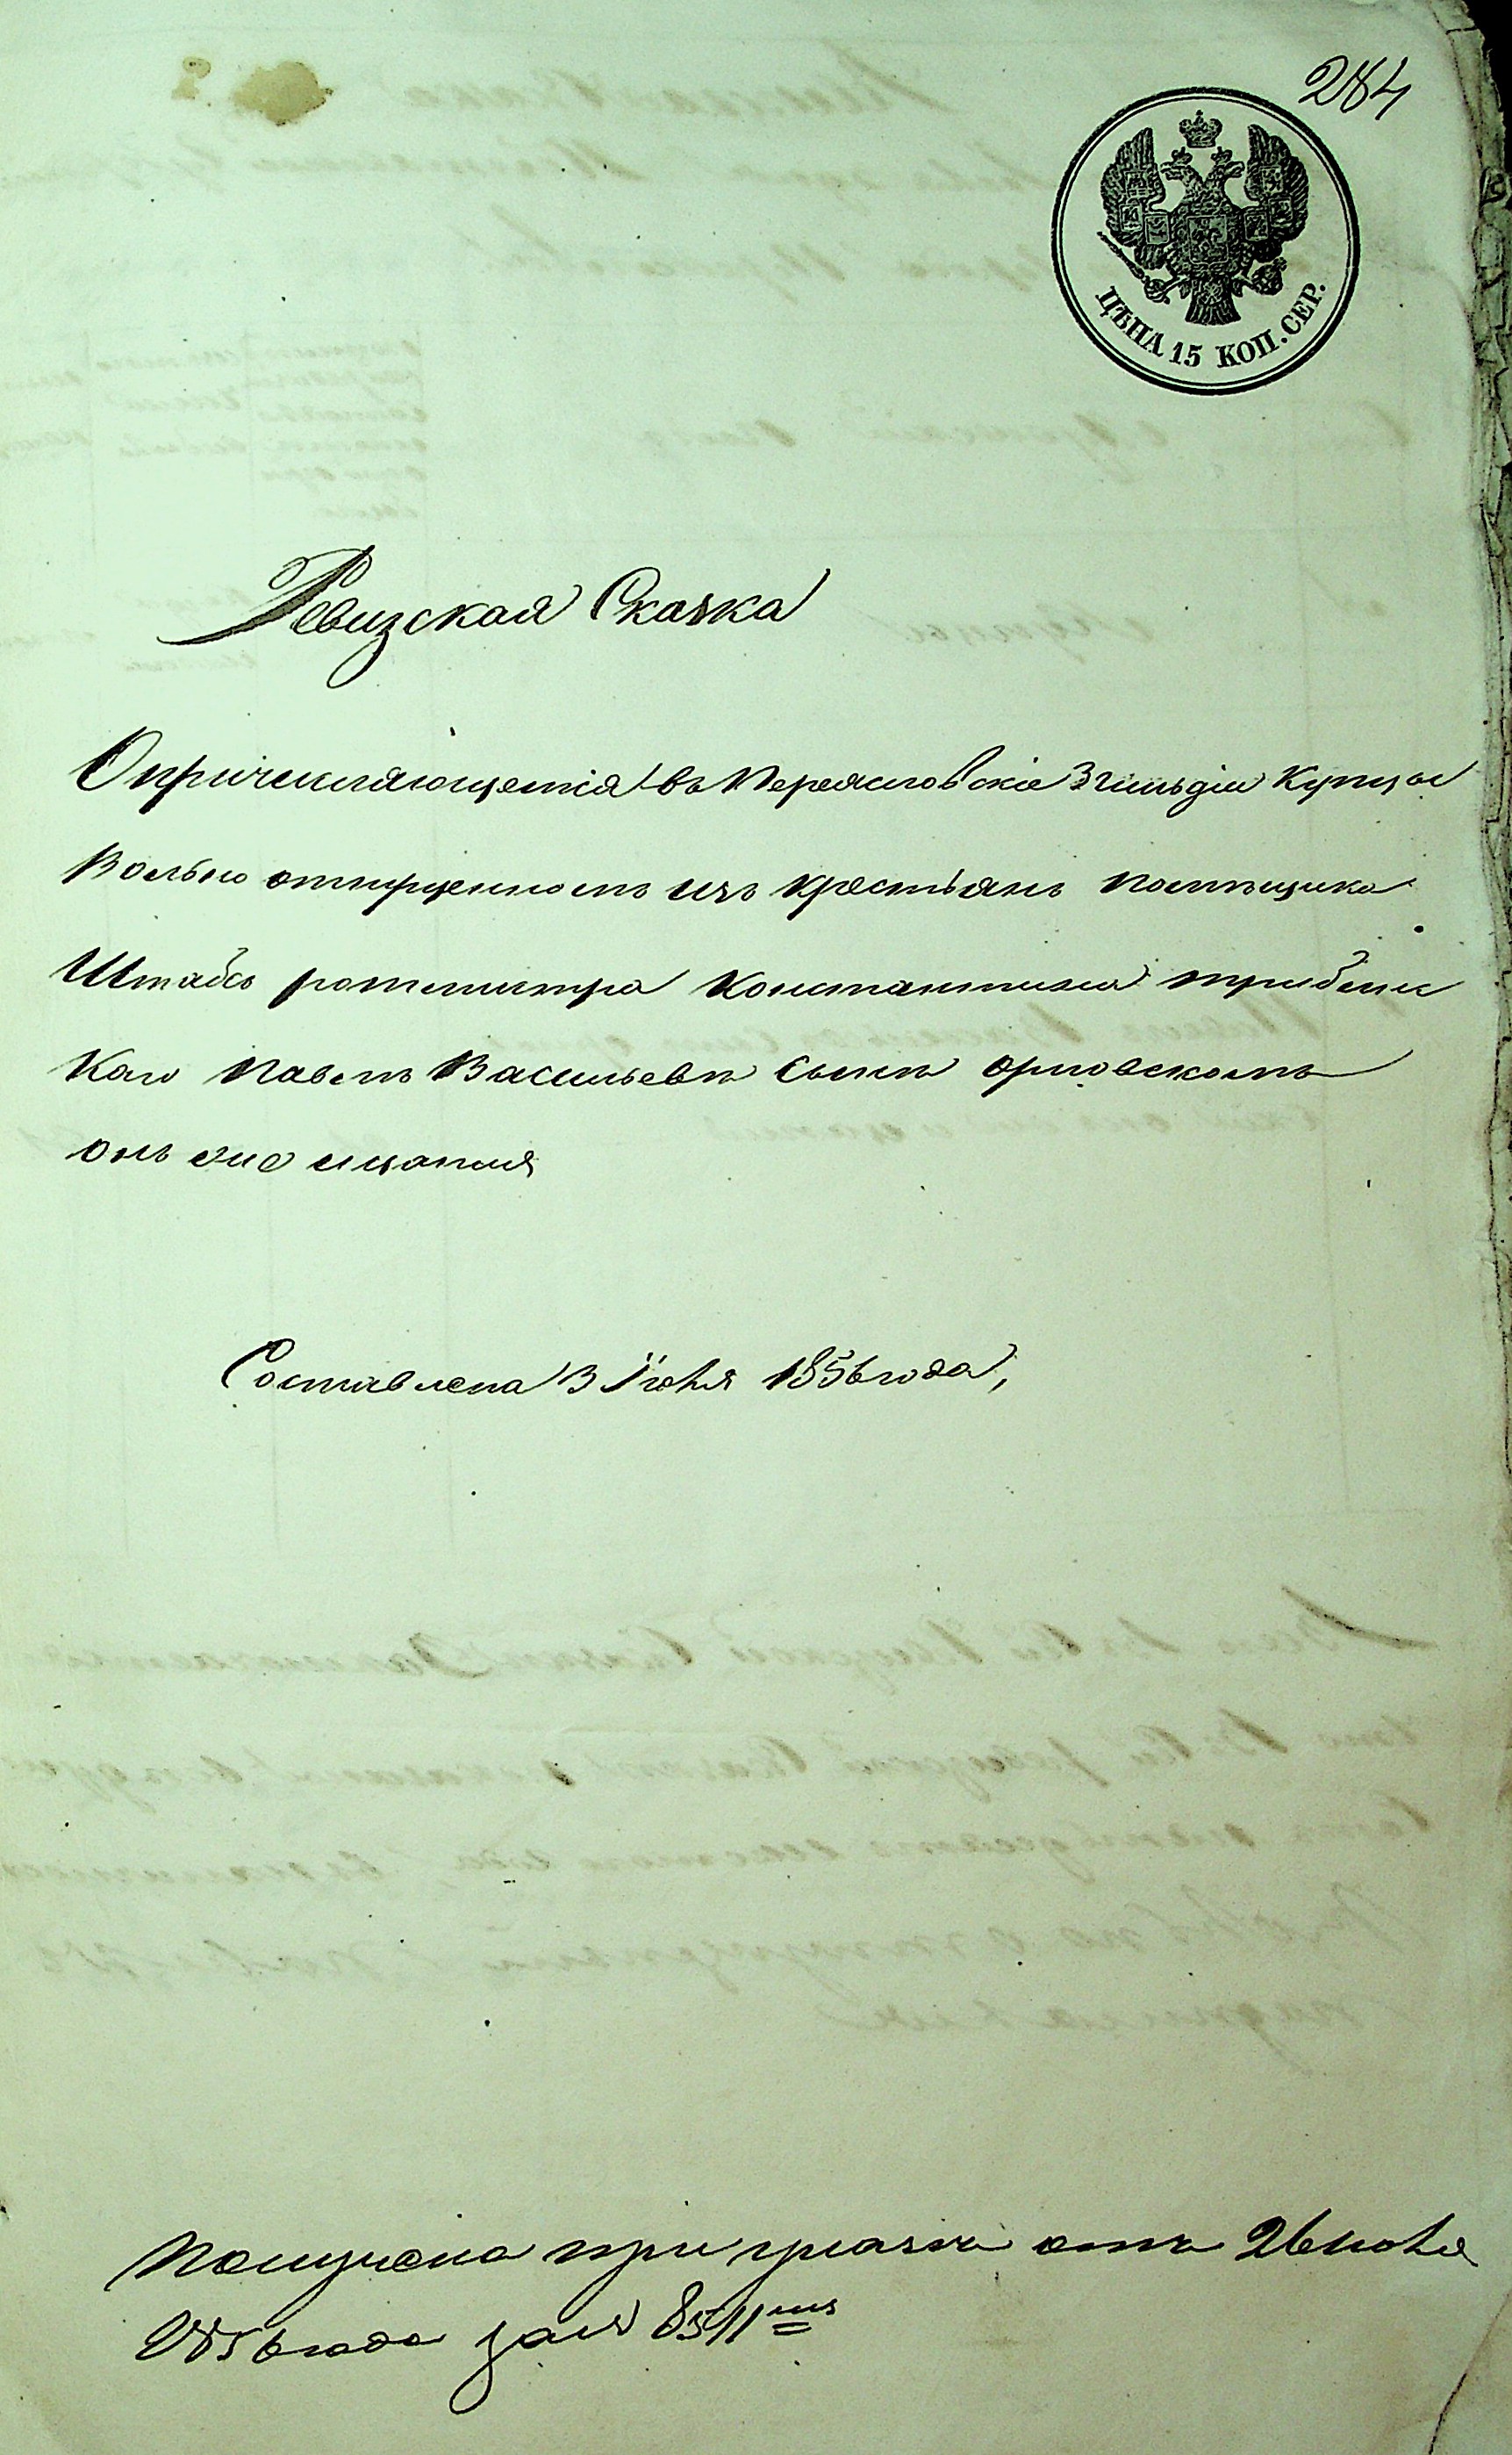 284
ЦѢНА 15 КОП. СЕР.
Ревизская Сказка
О причисляющемся въ Переясловскіе 3 гильдіи Купцы
Вольно отпущенномъ изъ крестьянъ помѣщика
Штабсъ ротмистра Константина
Павелъ Васильевъ сынъ Орловскомъ
онъ же
Составлена 3 Іюня 1856 года,
Получена при указѣ отъ 26 ноя
1856 года за №